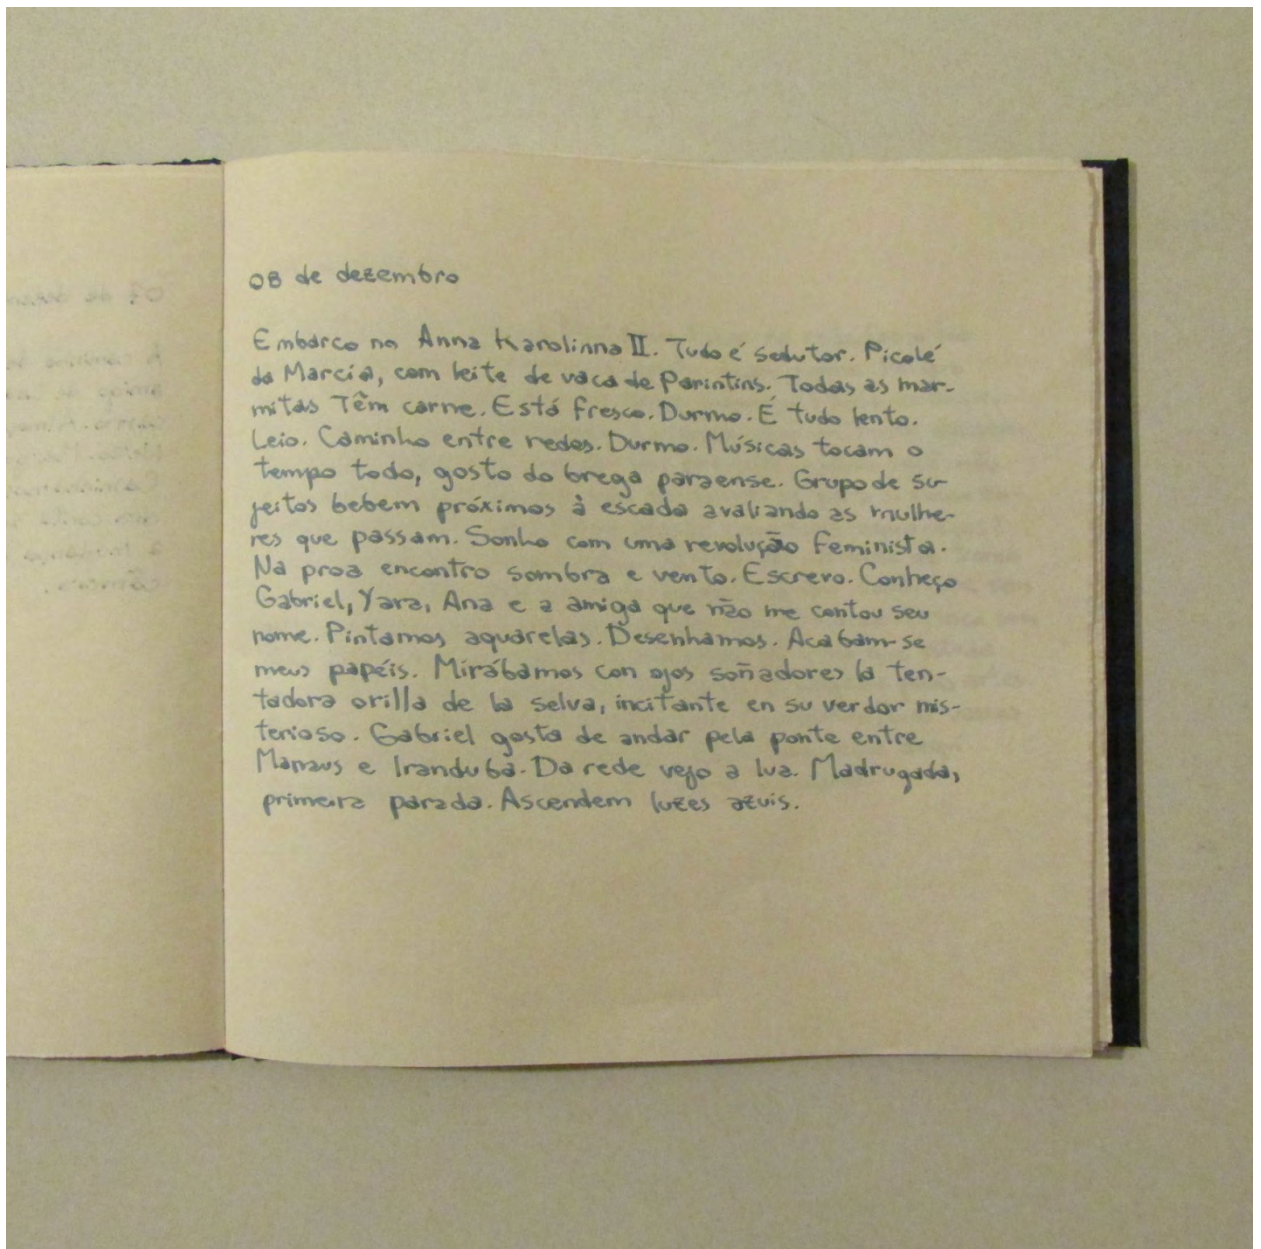 08 de dezembro
Embarco no Anna Karolinna II. Tudo é sedutor. Picolé
da Marcia, com leite de vaca de Parintins. Todas as mar-
mitas Têm carne. Está fresco. Durmo. É tudo lento.
Leio. Caminho entre redes. Durmo. Músicas tocam o
tempo todo, gosto do brega paraense. Grupo de su-
jeitos bebem próximos à escada avaliando as mulhe-
res que passam. Sonho com uma revolução feminista.
Na proa encontro sombra e vento. Escrevo. Conheço
Gabriel, Yara, Ana e a amiga que não me contou seu
nome. Pintamos aquarelas. Desenhamos. Acabam-se
meus papéis. Mirábamos con ojos soñadores la ten-
tadora orilla de la selva, incitante en su verdor mis-
terioso. Gabriel gosta de andar pela ponte entre
Manaus e Iranduba. Da rede vejo a lua. Madrugada,
primeira parada. Ascendem luzes azuis.